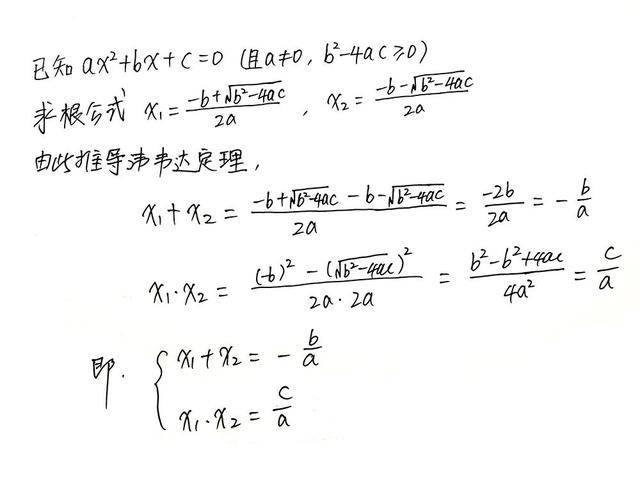 已知 ax²+bx+c=0 (且a≠0, b²-4ac≥0)
求根公式 x₁=(-b+√(b²-4ac))/(2a) , x₂=(-b-√(b²-4ac))/(2a)
由此推导韦达定理,
x₁+x₂ = (-b+√(b²-4ac) -b-√(b²-4ac))/(2a) = (-2b)/(2a) = -b/a
x₁·x₂ = ((-b)²-(√(b²-4ac))²)/(2a·2a) = (b²-b²+4ac)/(4a²) = c/a
即. { x₁+x₂ = -b/a
x₁·x₂ = c/a